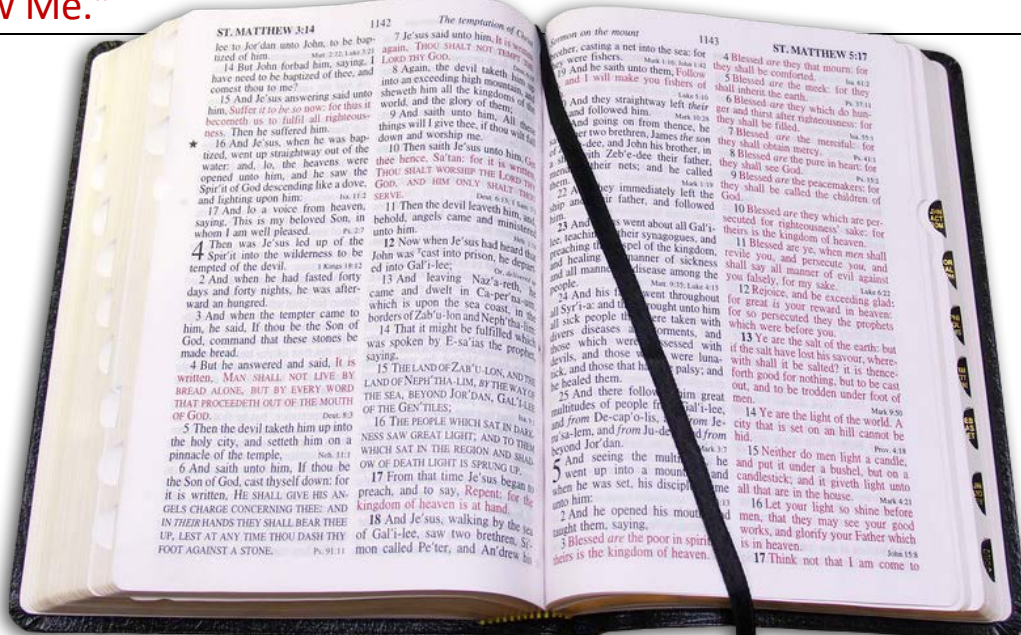 Me."
ST. MATTHEW 3:14
1142
The temptation of
lee to Jor'dan unto John, to be bap-
tized of him. Matt. 2:22; Luke 3:21
14 But John forbad him, saying, I
have need to be baptized of thee, and
comest thou to me?
15 And Je'sus answering said unto
him, Suffer it to be so now: for thus it
becometh us to fulfil all righteous-
ness. Then he suffered him.
★ 16 And Je'sus, when he was bap-
tized, went up straightway out of the
water: and, lo, the heavens were
opened unto him, and he saw the
Spir'it of God descending like a dove,
and lighting upon him: Isa. 11:2
17 And lo a voice from heaven,
saying, This is my beloved Son, in
whom I am well pleased. Ps. 2:7
4 Then was Je'sus led up of the
Spir'it into the wilderness to be
tempted of the devil. 1 Kings 18:12
2 And when he had fasted forty
days and forty nights, he was after-
ward an hungred.
3 And when the tempter came to
him, he said, If thou be the Son of
God, command that these stones be
made bread.
4 But he answered and said, It is
written, MAN SHALL NOT LIVE BY
BREAD ALONE, BUT BY EVERY WORD
THAT PROCEEDETH OUT OF THE MOUTH
OF GOD. Deut. 8:3
5 Then the devil taketh him up into
the holy city, and setteth him on a
pinnacle of the temple, Neh. 11:1
6 And saith unto him, If thou be
the Son of God, cast thyself down: for
it is written, HE SHALL GIVE HIS AN-
GELS CHARGE CONCERNING THEE: AND
IN THEIR HANDS THEY SHALL BEAR THEE
UP, LEST AT ANY TIME THOU DASH THY
FOOT AGAINST A STONE. Ps. 91:11
7 Je'sus said unto him, It is written
again, THOU SHALT NOT TEMPT THE
LORD THY GOD.
8 Again, the devil taketh him
into an exceeding high mountain, and
sheweth him all the kingdoms of the
world, and the glory of them;
9 And saith unto him, All these
things will I give thee, if thou wilt fall
down and worship me.
10 Then saith Je'sus unto him, Get
thee hence, Sa'tan: for it is written,
THOU SHALT WORSHIP THE LORD THY
GOD, AND HIM ONLY SHALT THOU
SERVE. Deut. 6:13;
11 Then the devil leaveth him, and,
behold, angels came and ministered
unto him.
12 Now when Je'sus had heard that
John was cast into prison, he depart-
ed into Gal'i-lee;
13 And leaving Naz'a-reth, he
came and dwelt in Ca-per'na-um,
which is upon the sea coast, in the
borders of Zab'u-lon and Neph'tha-lim:
14 That it might be fulfilled which
was spoken by E-sa'ias the prophet,
saying,
15 THE LAND OF ZAB'U-LON, AND THE
LAND OF NEPH'THA-LIM, BY THE WAY OF
THE SEA, BEYOND JOR'DAN, GAL'I-LEE
OF THE GEN'TILES;
16 THE PEOPLE WHICH SAT IN DARK-
NESS SAW GREAT LIGHT; AND TO THEM
WHICH SAT IN THE REGION AND SHAD-
OW OF DEATH LIGHT IS SPRUNG UP.
17 From that time Je'sus began to
preach, and to say, Repent: for the
kingdom of heaven is at hand.
18 And Je'sus, walking by the sea
of Gal'i-lee, saw two brethren, Si'-
mon called Pe'ter, and An'drew his
Sermon on the mount
1143
ST. MATTHEW 5:17
brother, casting a net into the sea: for
they were fishers. Mark 1:16; John 1:42
19 And he saith unto them, Follow
and I will make you fishers of
Luke 5:10
And they straightway left their
and followed him. Mark 10:28
And going on from thence, he
two brethren, James the son
of -dee, and John his brother, in
a with Zeb'e-dee their father,
their nets; and he called
them. Mark 1:19
22 they immediately left the
ship and their father, and followed
him.
23 And went about all Gal'i-
lee, teaching their synagogues, and
preaching the gospel of the kingdom,
and healing manner of sickness
and all manner disease among the
people. Matt. 9:35; Luke 4:15
24 And his went throughout
all Syr'i-a: and they brought unto him
all sick people were taken with
divers diseases torments, and
those which were possessed with
devils, and those were luna-
tick, and those that palsy; and
he healed them.
25 And there followed him great
multitudes of people from Gal'i-lee,
and from De-cap'o-lis, from Je-
ru'sa-lem, and from Ju-de and from
beyond Jor'dan. Mark 3:7
5 And seeing the he
went up into a mountain and
when he was set, his disciples
unto him:
2 And he opened his mouth and
taught them, saying,
3 Blessed are the poor in spirit
theirs is the kingdom of heaven.
4 Blessed are they that mourn: for
they shall be comforted. Isa. 61:2
5 Blessed are the meek: for they
shall inherit the earth. Ps. 37:11
6 Blessed are they which do hun-
ger and thirst after righteousness: for
they shall be filled. Isa. 55:1
7 Blessed are the merciful: for
they shall obtain mercy. Ps. 41:1
8 Blessed are the pure in heart: for
they shall see God. Ps. 15:2
9 Blessed are the peacemakers: for
they shall be called the children of
God.
10 Blessed are they which are per-
secuted for righteousness' sake: for
theirs is the kingdom of heaven.
11 Blessed are ye, when men shall
revile you, and persecute you, and
shall say all manner of evil against
you falsely, for my sake. Luke 6:22
12 Rejoice, and be exceeding glad:
for great is your reward in heaven:
for so persecuted they the prophets
which were before you.
13 Ye are the salt of the earth: but
if the salt have lost his savour, where-
with shall it be salted? it is thence-
forth good for nothing, but to be cast
out, and to be trodden under foot of
men. Mark 9:50
14 Ye are the light of the world. A
city that is set on an hill cannot be
hid. Prov. 4:18
15 Neither do men light a candle,
and put it under a bushel, but on a
candlestick; and it giveth light unto
all that are in the house. Mark 4:21
16 Let your light so shine before
men, that they may see your good
works, and glorify your Father which
is in heaven. John 15:8
17 Think not that I am come to